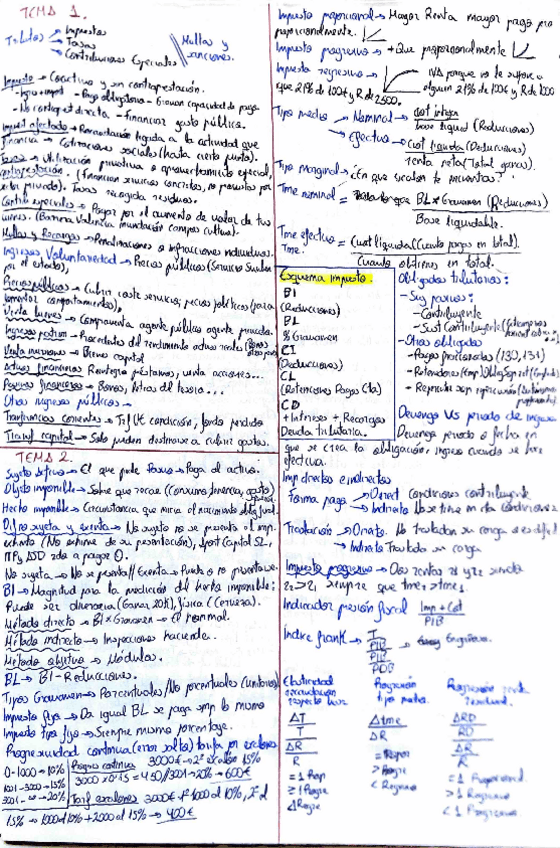 TEMA 1.
Tributos → Impuestos
→ Tasas
→ Contribuciones Especiales
Multas y
sanciones.
Impuesto → Coactivo y sin contraprestación.
- Pago obligatorio - Gravan capacidad de pago
- No contraprest directa - Financiar gasto público.
Impuest afectado → Recaudación ligada a la actividad que
financia → Cotizaciones sociales (hasta cierto punto).
Tasas → Utilización privativa o aprovechamiento especial,
contraprestación. (Financian servicios concretos, no prestados por
sector privado). Tasas recogida residuos.
Contrib especiales → Pagar por el aumento de valor de tus
Multas y Recargos → Penalizaciones o infracciones individuos.
Ingresos Voluntariedad → Precios públicos (Servicio Sumin
por el estado),
Precios públicos → Cubrir coste servicios, precios políticos (para
fomentar comportamientos),
Venta bienes → Compraventa agente público agente privado.
Ingresos patrim → Procedentes del rendimiento activos reales
Venta inversiones → Bienes capital
Activos financieros → Reintegro préstamos, venta acciones...
Pasivos financieros → Bonos, letras del tesoro...
Otros ingresos públicos →
Transferencias corrientes → condición, fondo perdido
Transf capital → Solo pueden destinarse a cubrir gastos.
TEMA 2.
Sujeto activo → El que pide Pasivo → Paga al activo.
Objeto imponible → Sobre que recae. (Consumo, herencia, gasto)
Hecho imponible → Circunstancia que inicia el nacimiento oblig fiscal.
Dif no sujeta y exenta → No sujeto no se presenta el imp.
exenta (No exime de su presentación),
No sujeta → No se presenta // Exenta → Puede o no presentarse.
BI → Magnitud para la medición del hecho imponible:
Puede ser dineraria (Ganar 20k), física (Cerveza).
Método directo → BI x Gravamen → El normal.
Método indirecto → Inspecciones hacienda.
Método objetivo → Módulos.
BL → BI - Reducciones.
Tipos Gravamen → Porcentuales / No porcentuales (unitarios)
Impuesto fijo → Da igual BL se paga imp lo mismo
Impuesto tipo fijo → Siempre mismo porcentaje.
Progresividad continua (error salto) tarifa por escalones
0-1000 → 10%
1001-3000 → 15%
3001 - ∞ → 20%
Progres continua 3000€ → 2º escalón 15%
3000 x 0'15 = 450 // 3001 → 20% → 600€
Tarif escalones 3000€ 1º 1000 al 10%, 2º al
15% → 1000 al 10% + 2000 al 15% → 400€
Impuesto proporcional → Mayor Renta mayor pago pro
porcionalmente.
Impuesto progresivo → + Que proporcionalmente
Impuesto regresivo → IVA porque no le supone a
alguien 21% de 100€ y R de 1000
que 21% de 100€ y R de 2500.
Tipo medio → Nominal → cuot íntegra
base liquid (Reducciones)
→ efectivo → cuot líquida (Deducciones)
renta neta (Total ganas).
Tipo marginal → ¿En que escalón te encuentras?
Tme nominal = BL x Gravamen (Reducciones)
Base liquidable.
Tme efectivo = Cuot líquida (Cuanto pagas en total).
Tme. Cuanto obtienes en total.
Esquema impuesto.
BI
(Reducciones)
BL
% Gravamen
CI
(Deducciones)
CL
(Retenciones Pagos Cta)
CD
+ Intereses + Recargos
Deuda tributaria.
Obligados tributarios:
- Suj pasivos:
- Contribuyente
- Sust Contribuyente
- Otros obligados
- Pagos fraccionados (130, 131)
- Retenedores
Devengo Vs periodo de ingreso
Devengo periodo o fecha en
que se crea la obligación, ingreso cuando se hace
efectiva.
Imp directos e indirectos
Forma pago → Direct condiciones contribuyente
→ Indirecto No se tiene en cta condiciones
Traslación → Directo. No trasladan su carga o es difícil
→ Indirecto Traslada su carga
Impuesto progresivo → Dos rentas
z2 > z1 siempre que tme2 > tme1.
Indicador presión fiscal Imp + Cot
PIB
Índice frank → T
PIB
PIB
POB
Elasticidad
recaudación
respecto base
ΔT
T
ΔR
R
= 1 Prop
Progresión
tipo medio.
Δtme
ΔR
= Propor
> Progre
< Regresivo
Progresión renta
residual.
ΔRD
RD
ΔR
R
= 1 Proporcional
> 1 Regresivo
< 1 Progresivo